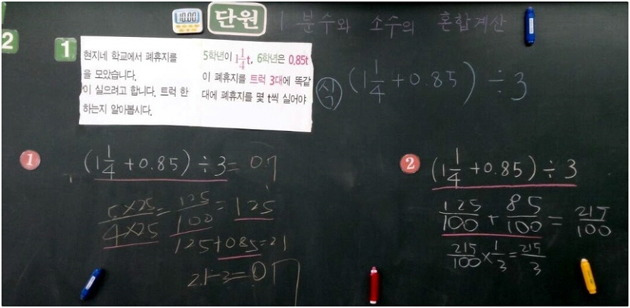 10:00
단원 1 분수와 소수의 혼합계산
2
1
현지네 학교에서 폐휴지를 5학년이 1 1/4t, 6학년은 0.85t
을 모았습니다. 이 폐휴지를 트럭 3대에 똑같
이 실으려고 합니다. 트럭 한 대에 폐휴지를 몇 t씩 실어야
하는지 알아봅시다.
식 (1 1/4 + 0.85) ÷ 3
1
(1 1/4 + 0.85) ÷ 3 = 0.7
5×25/4×25 = 125/100 = 1.25
1.25 + 0.85 = 2.1
2.1÷3 = 0.7
2
(1 1/4 + 0.85) ÷ 3
125/100 + 85/100 = 215/100
215/100 × 1/3 = 215/3